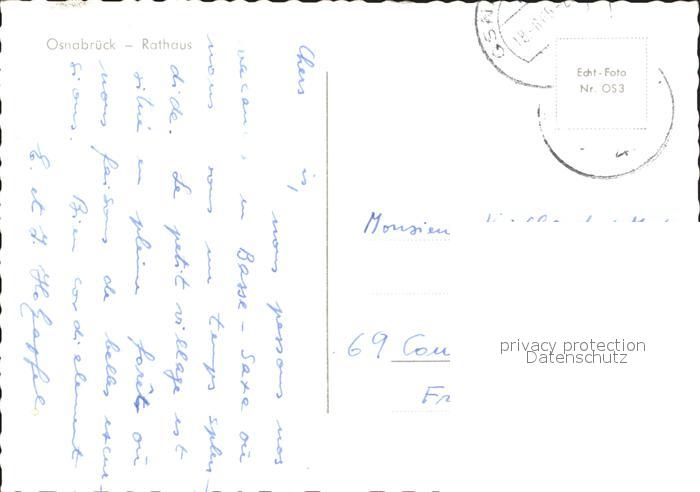 Osnabrück – Rathaus
Echt-Foto
Nr. OS3
Chers is, nous passons nos
vacan s en Basse-Saxe où
nous ns un temps splen-
dide. Le petit village est
situé en pleine forêt où
nous faisons de belles excur-
sions. Bien cordialement
E. et J. Holzapfel
Monsieu
69 Cou
Fr
privacy protection
Datenschutz
OSN